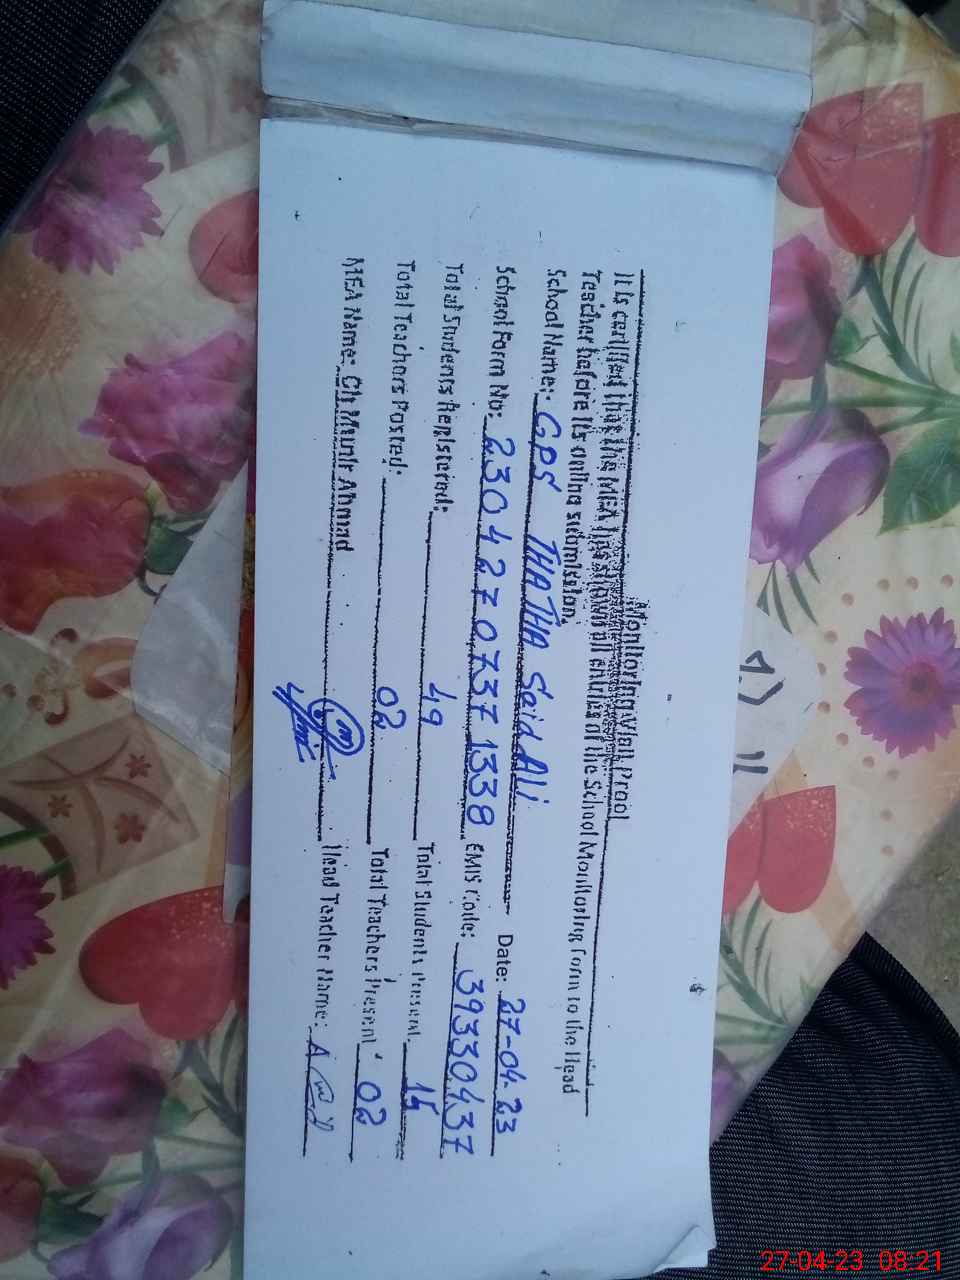 Monitoring Visit Proof
It is certified that the MEA has shown all entries of the School Monitoring Form to the Head
Teacher before its online submission.
School Name:- GPS THATHA Said Ali Date: 27-04-23
School Form No: 2304270737 1338 EMIS Code: 39330437
Total Students Registered: 49 Total Students Present. 15
Total Teachers Posted: 02 Total Teachers Present 02
MEA Name: Ch Munir Ahmad Head Teacher Name:
27-04-23 08:21